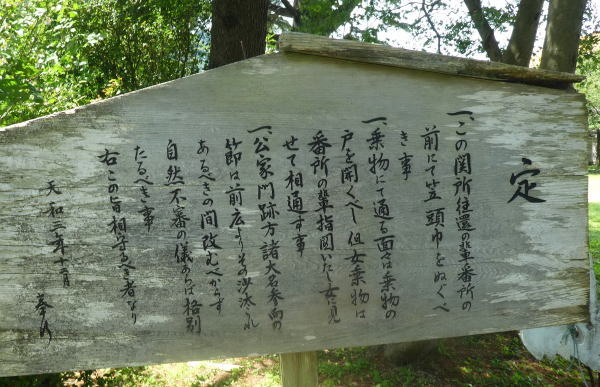 定
一、この関所往還の輩番所の
前にて笠頭巾をぬぐべ
き事
一、乗物にて通る面々は乗物の
戸を開くべし但女乗物は
番所の輩指図いたし女見
せて相通す事
一、公家門跡方諸大名参向の
節は前広よりその沙汰これ
あるべきの間改むべからず
自然不審の儀あらば格別
たるべき事
右この旨相守るべき者なり
天和三年十二月 奉行